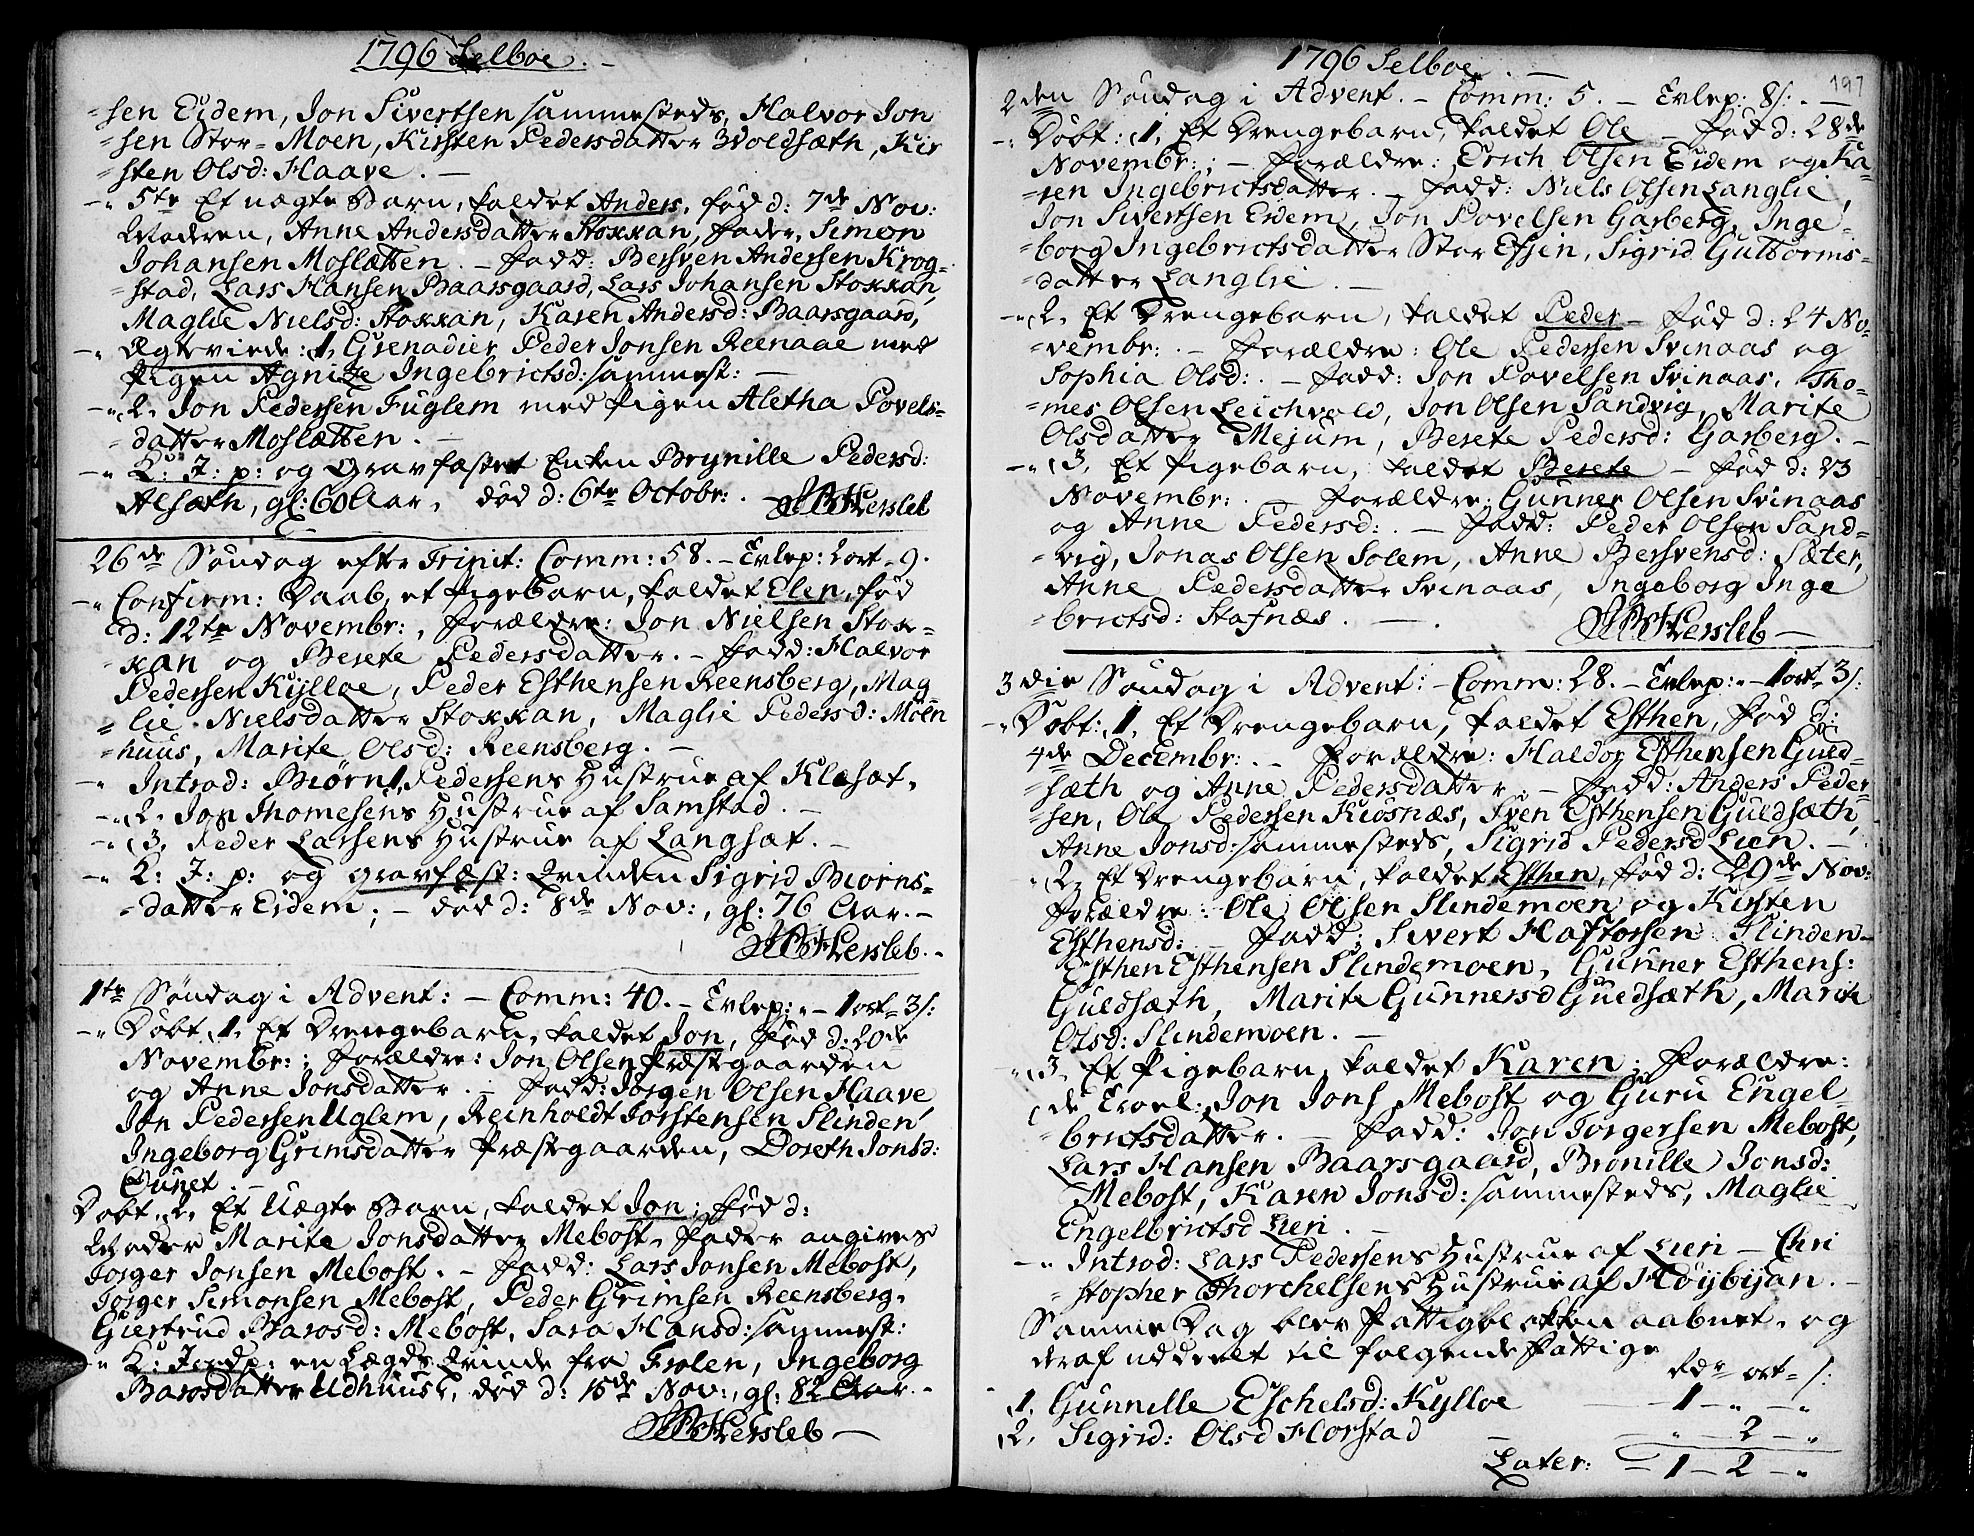 1796 Selboe.
-sen Eidem, Jon Sivertsen sammesteds, Halvor Jon
-sen Stor-Moen, Kirsten Pedersdatter Woldsæth, Kir
-sten Olsd: Haave.
5te Et uægte Barn, kaldet Anders, fød d: 7de Nov:
Moderen, Anne Andersdatter Stokkan, Fader, Simon
Johansen Moslætten. - Fadd: Bersven Andersen Krog-
-stad, Lars Hansen Baarsgaard, Lars Johansen Stokkan,
Maglie Nielsd: Stokkan, Karen Andersd: Baarsgaard,
Ægteviede: 1, Grenadier Peder Jonsen Reenaae med
Pigen Agnize Ingebrictsd: sammest:
2, Jon Pedersen Fuglem med Pigen Aletha Povels-
-datter Moslætten.
K: J: p: og Gravfæstet Enken Brynille Pedersd:
Alsæth, gl: 60 Aar, død d: 6te Octobr:. HHersleb
26de Søndag efter Trinit: Comm: 58. - Exlep: 2 ort - 9.
Confirm: Daab, et Pigebarn, kaldet Elen, fød
d: 12te Novembr:, Forældre: Jon Nielsen Stok-
-kan og Berete Pedersdatter. - Fadd: Halvor
Pedersen Kylloe, Peder Esthensen Reensberg, Mag-
-lie Nielsdatter Stokkan, Maglie Pedersd: Moen
huus, Marite Olsd: Reensberg.
Introd: Biørn 1, Pedersens Hustrue af Klæsæt.
2, Jon Thomesens Hustrue af Samstad.
3, Peder Larsens Hustrue af Langsæt.
K: J: p: og gravfæst: Qvinden Sigrid Biørns-
-datter Eidem; - død d: 8de Nov:, gl: 76 Aar. -
HHersleb.
1te Søndag i Advent: - Comm: 40. - Exlep: - 1 ort - 3 s:
Døbt 1, Et Drengebarn, kaldet Jon, fød d: 20de
Novembr:; Forældre: Jon Olsen Præstgaarden
og Anne Jonsdatter. - Fadd: Jørgen Olsen Haave
Jon Pedersen Uglem, Reinholdt Torstensen Slinden,
Ingeborg Grimsdatter Præstgaarden, Doreth Jonsd:
Ounet.
Døbt 2, Et Uægte Barn, kaldet Jon, fød d:
Moder Marite Jonsdatter Mebost, Fader angives
Jørger Jonsen Mebost. - Fadd: Lars Jonsen Mebost,
Jørger Simonsen Mebost, Peder Grimsen Reensberg.
Giertrud Barosd: Mebost, Sara Hansd: sammest:
K: J: og p: en Lægds Qvinde fra Frolen, Ingeborg
Barosdatter Udhuus, død d: 15de Nov:, gl: 82 Aar. -
HHersleb -
1796 Selboe.
197
2den Søndag i Advent. - Comm: 5. - Exlep: 8 s:. -
Døbt: 1, Et Drengebarn, kaldet Ole - fød d: 28de
Novembr:; - Forældre: Erich Olsen Eidem og Ka-
-ren Ingebrictsdatter. - Fadd: Niels Olsen Langlie,
Jon Sivertsen Eidem, Jon Povelsen Garberg, Inge-
-borg Ingebrictsdatter Stor Efsen, Sigrid Gulborms-
-datter Langlie.
2, Et Drengebarn, kaldet Peder - fød d: 24 No-
-vembr:. - Forældre: Ole Pedersen Svinaas og
Sophia Olsd:. - Fadd: Jon Povelsen Svinaas, Tho-
-mes Olsen Leichvold, Jon Olsen Sandvig, Marite
Olsdatter Mejum, Berete Pedersd: Garberg. -
3, Et Pigebarn, kaldet Berete - fød d: 23
Novembr:. - Forældre: Gunner Olsen Svinaas
og Anne Pedersd:. - Fadd: Peder Olsen Sand-
-vig, Jonas Olsen Solem, Anne Bersvensd: Sæter,
Anne Pedersdatter Svinaas, Ingeborg Inge
-brictsd: Stafnæs.
HHersleb -
3die Søndag i Advent: - Comm: 28. - Exlep: - 1 ort 3 s:
Døbt: 1, Et Drengebarn, kaldet Esthen, fød d:
4de Decembr:. - Forældre: Haldor Esthensen Guld-
-sæth og Anne Pedersdatter. - Fadd: Anders Peder-
-sen, Ole Pedersen Kiøsnæs, Sven Esthensen Guldsæth,
Anne Jonsd: sammesteds, Sigrid Pedersd Lien. -
2, Et Drengebarn, kaldet Esthen, fød d: 29de Nov:
Forældre: Ole Olsen Slindemoen og Kirsten
Esthensd: - Fadd: Sivert Haftorsen Slinden
Esthen Esthensen Slindemoen, Gunner Esthens:
Guldsæth, Marite Gunnersd Guldsæth, Marite
Olsd: Slindemoen.
3, Et Pigebarn, kaldet Karen; Forældre:
Jon Jons Mebost og Guru Engel-
-brictsdatter. - Fadd: Jon Jørgersen Mebost,
Lars Hansen Baarsgaard, Brønille Jonsd:
Mebost, Karen Jonsd: sammesteds, Maglie
Engelbrictsd Lien.
Introd: Lars Pedersens Hustrue af Lien - Chri
-stopher Thorchelsens Hustrue af Høybyan. -
Samme Dag blev Fattigblokken aabnet, og
deraf uddeelt til følgende Fattige
Rdr ort s:
1, Gunnille Eschelsd: Kylloe - 1 - " - "
2, Sigrid: Olsd Horstad - " - 2 - "
Later: - 1 - 2 - "